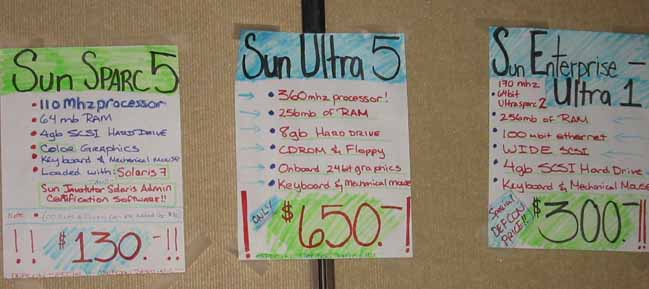 Sun SPARC 5
• 110 Mhz processor
• 64 mb RAM
• 4gb SCSI HARD DRIVE
Color Graphics
• Keyboard & Mechanical Mouse
• Loaded with: Solaris 7
Sun Javatutor Solaris Admin
Certification Software!!
Note:
!! $130.-!!
Sun Ultra 5
• 360mhz processor!
• 256mb of RAM
• 8gb HARD DRIVE
• CDROM & Floppy
• Onboard 24bit graphics
• Keyboard & Mechnical mouse
ONLY
! $650.-!!
Sun Enterprise -
Ultra 1
170 mhz
• 64bit
Ultrasparc 2
• 256mb of RAM
• 100 mbit ethernet
• WIDE SCSI
• 4gb SCSI Hard Drive
• Keyboard & Mechanical Mouse
Special
DEFCON
PRICE!!
$300.-!!